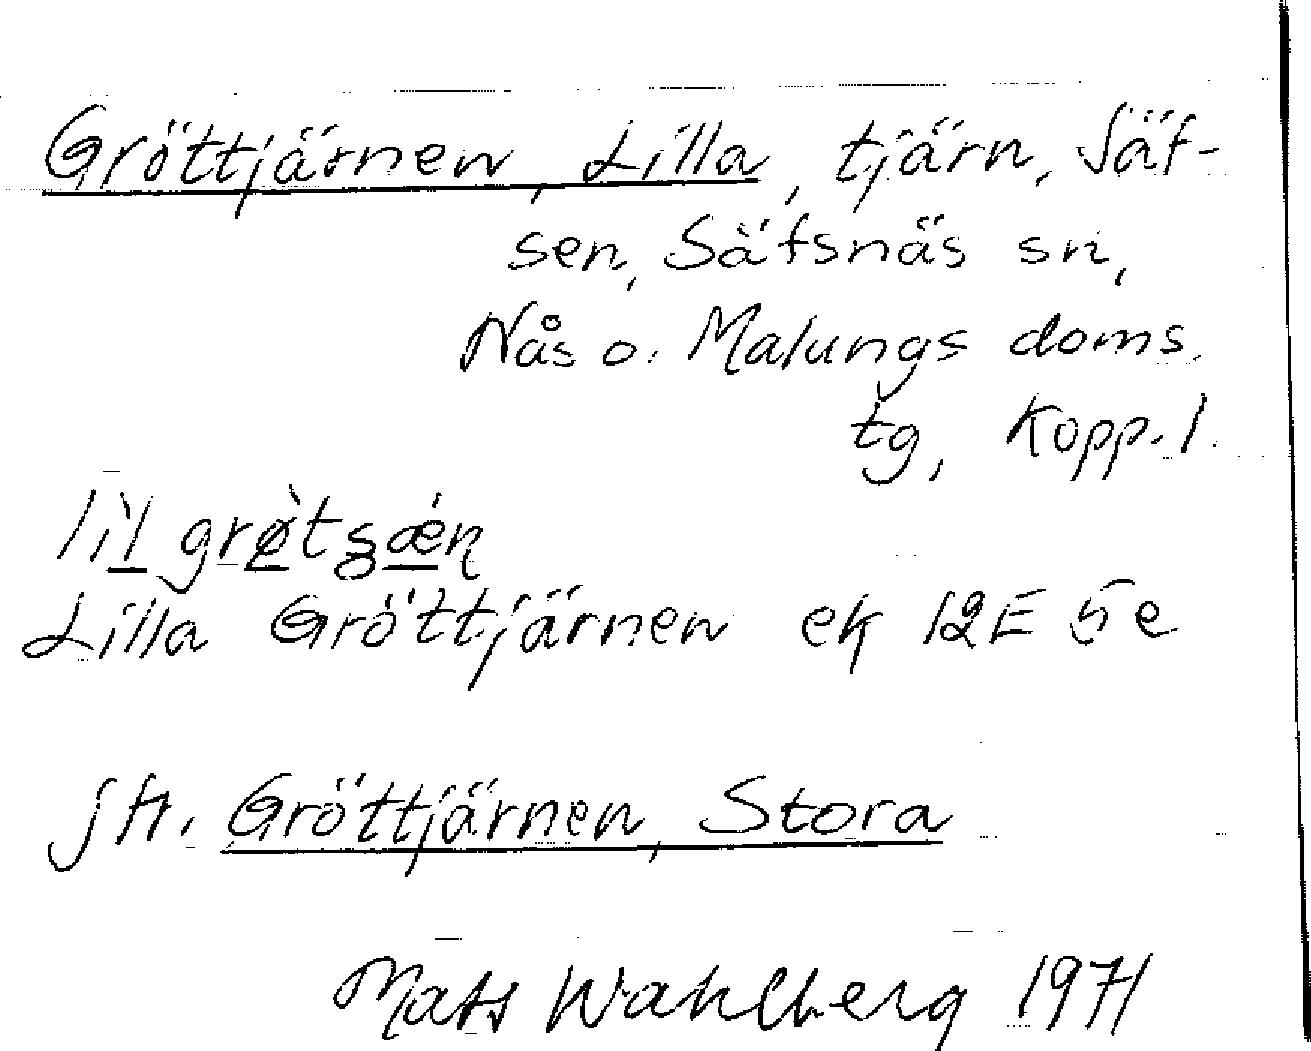 Gröttjärnen, Lilla, tjärn, Säf-
sen, Säfsnäs sn,
Nås o. Malungs doms.
tg, Kopp. l.
Lilla Gröttjärnen ek 12E 5e
jfr. Gröttjärnen, Stora
Mats Wahlberg 1971